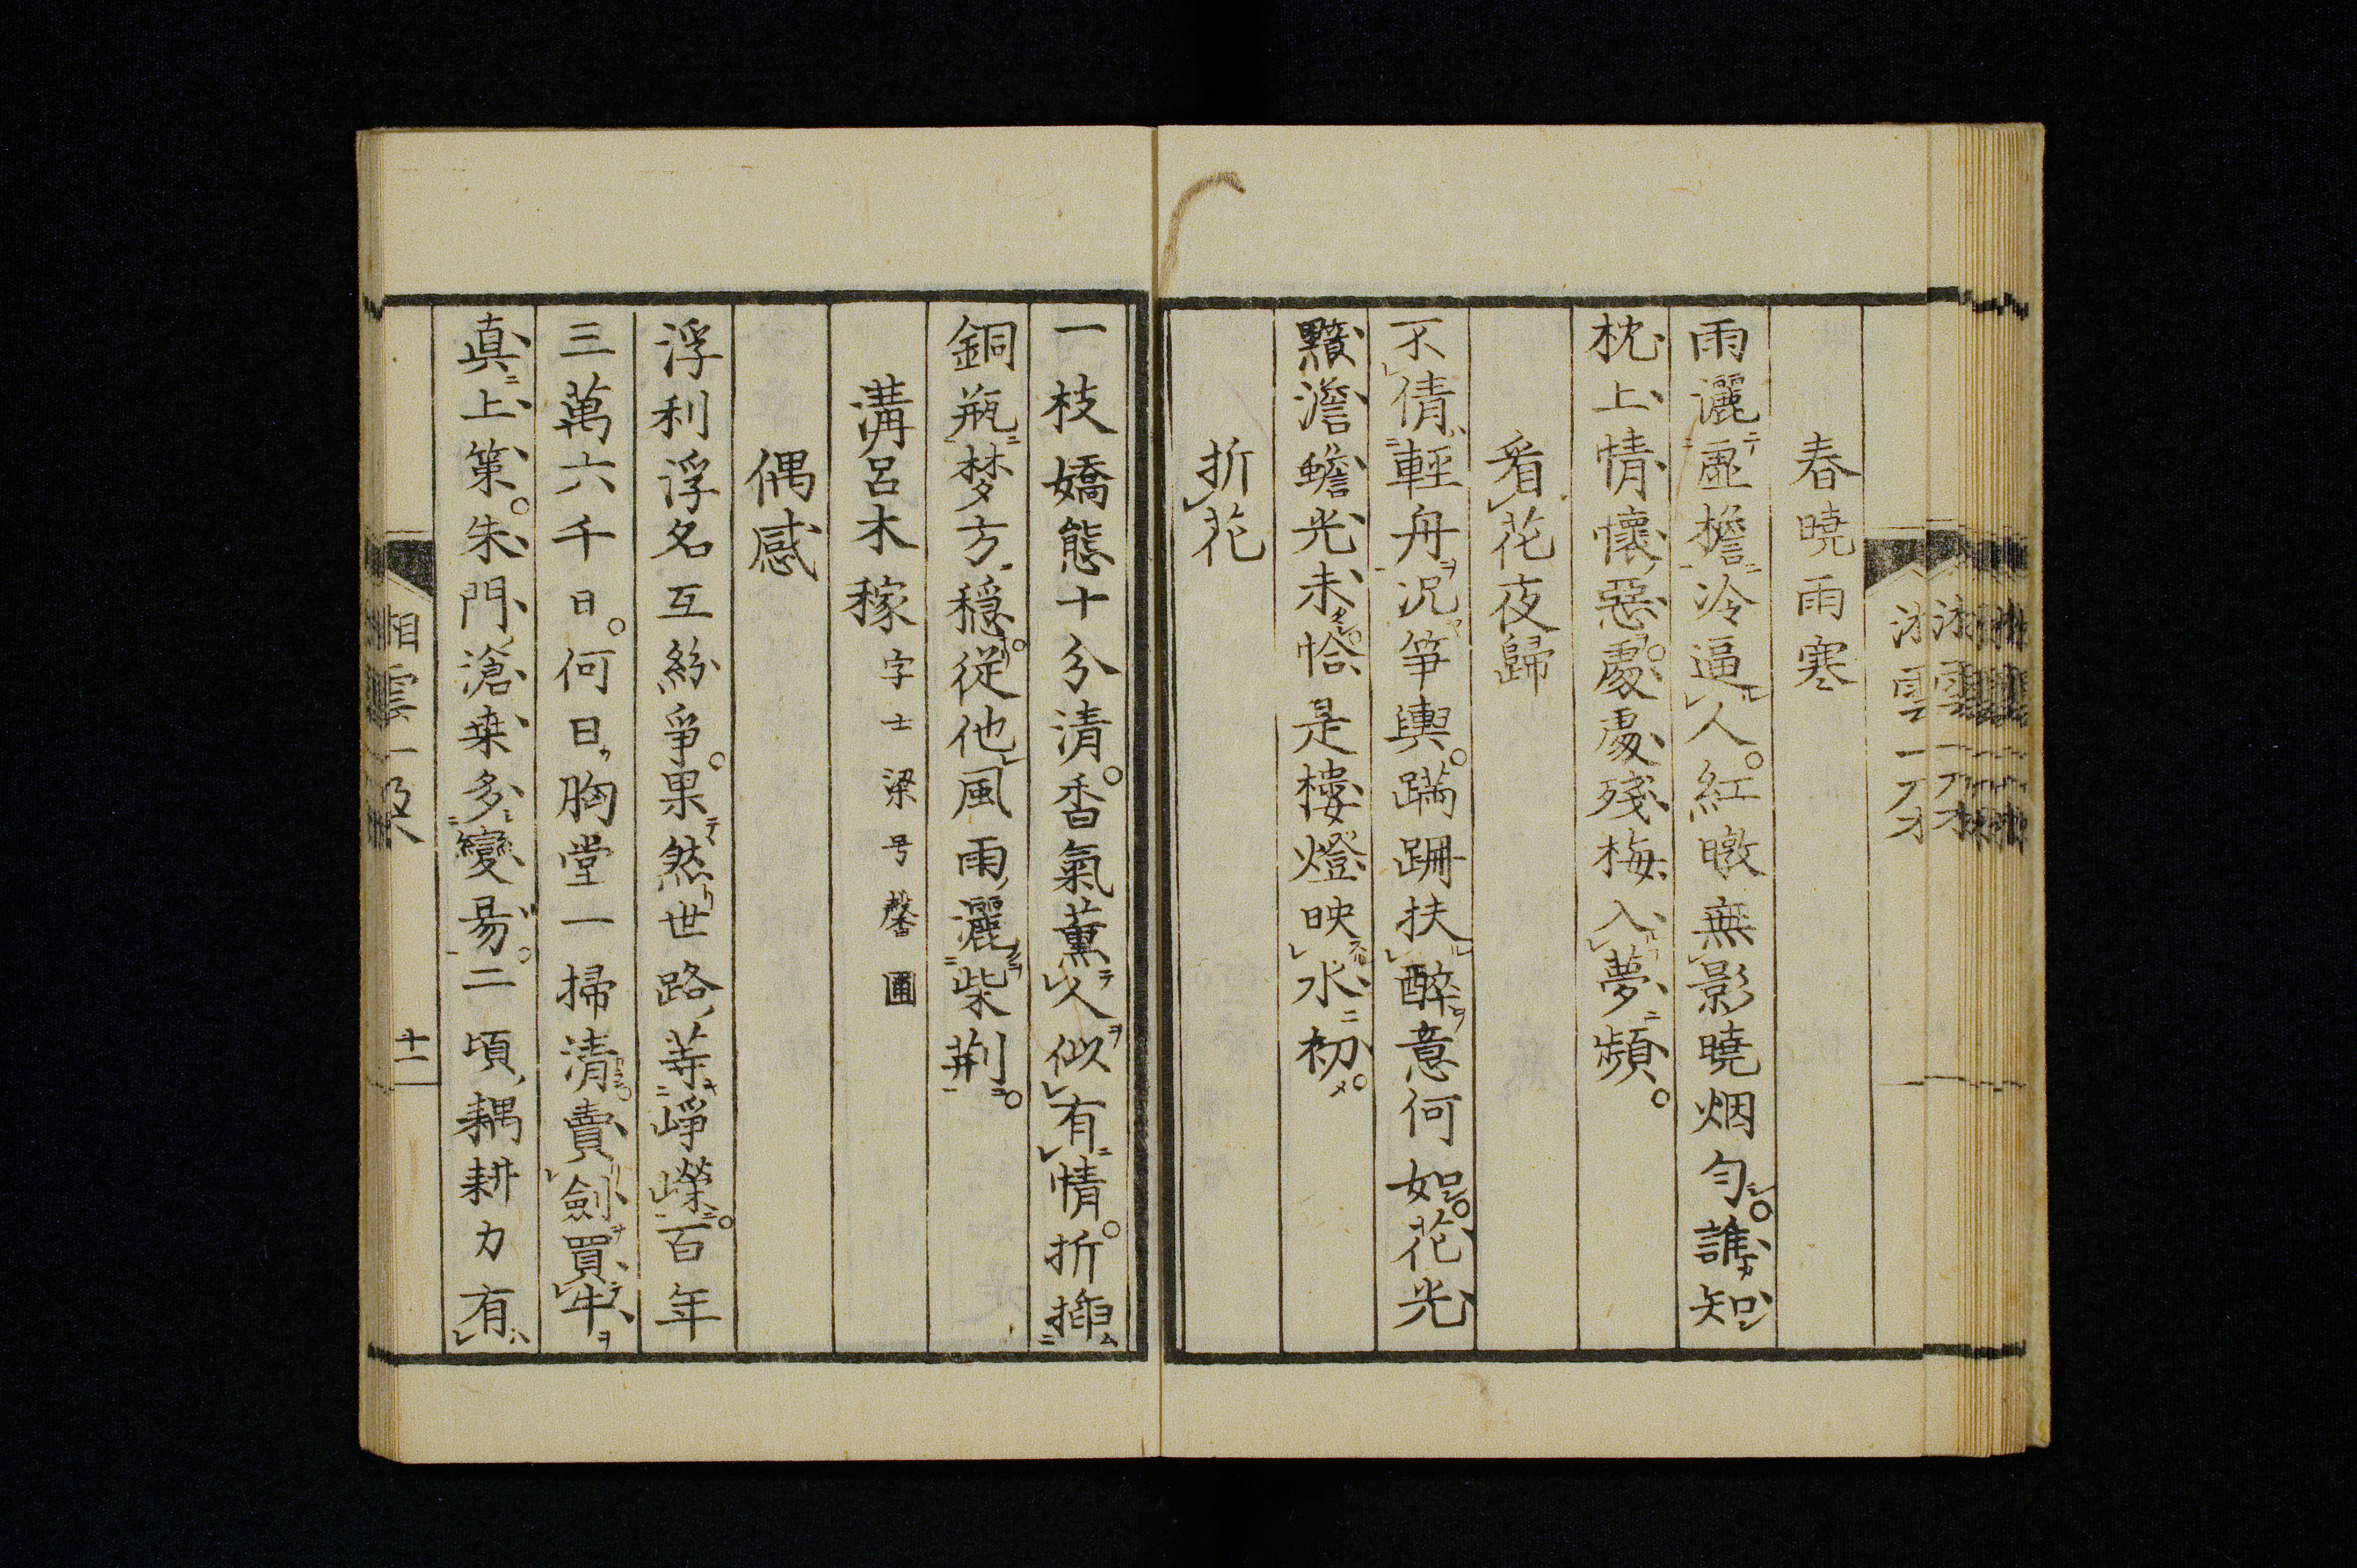 春曉雨寒
雨灑虛檐冷逼人。紅暾無影曉烟勻。誰知
枕上情懷惡。處處殘梅入夢頻。
看花夜歸
不倩輕舟況笋輿。蹣跚扶醉意何如。花光
黯澹蟾光未。恰是樓燈映水初。
折花
一枝嬌態十分清。香氣薰人似有情。折插
銅瓶梦方穩。從他風雨灑柴荆。
溝呂木稼 字士梁号馨圃
偶感
浮利浮名互紛爭。果然世路葬崢嶸。百年
三萬六千日。何日胸堂一掃清。賣劍買牛
真上策。朱門滄桒多變易。二頃耦耕力有
湘雲一
十一